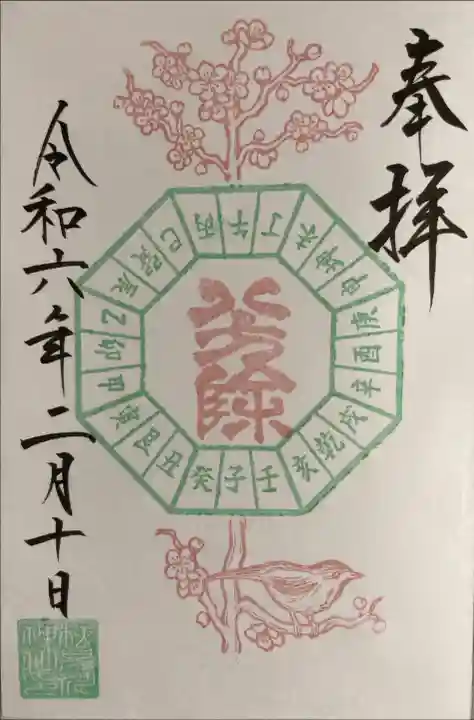 奉拝
八方除
子
癸
丑
艮
寅
甲
卯
乙
辰
巽
巳
丙
午
丁
未
坤
申
庚
酉
辛
戌
乾
亥
壬
令和六年二月十日